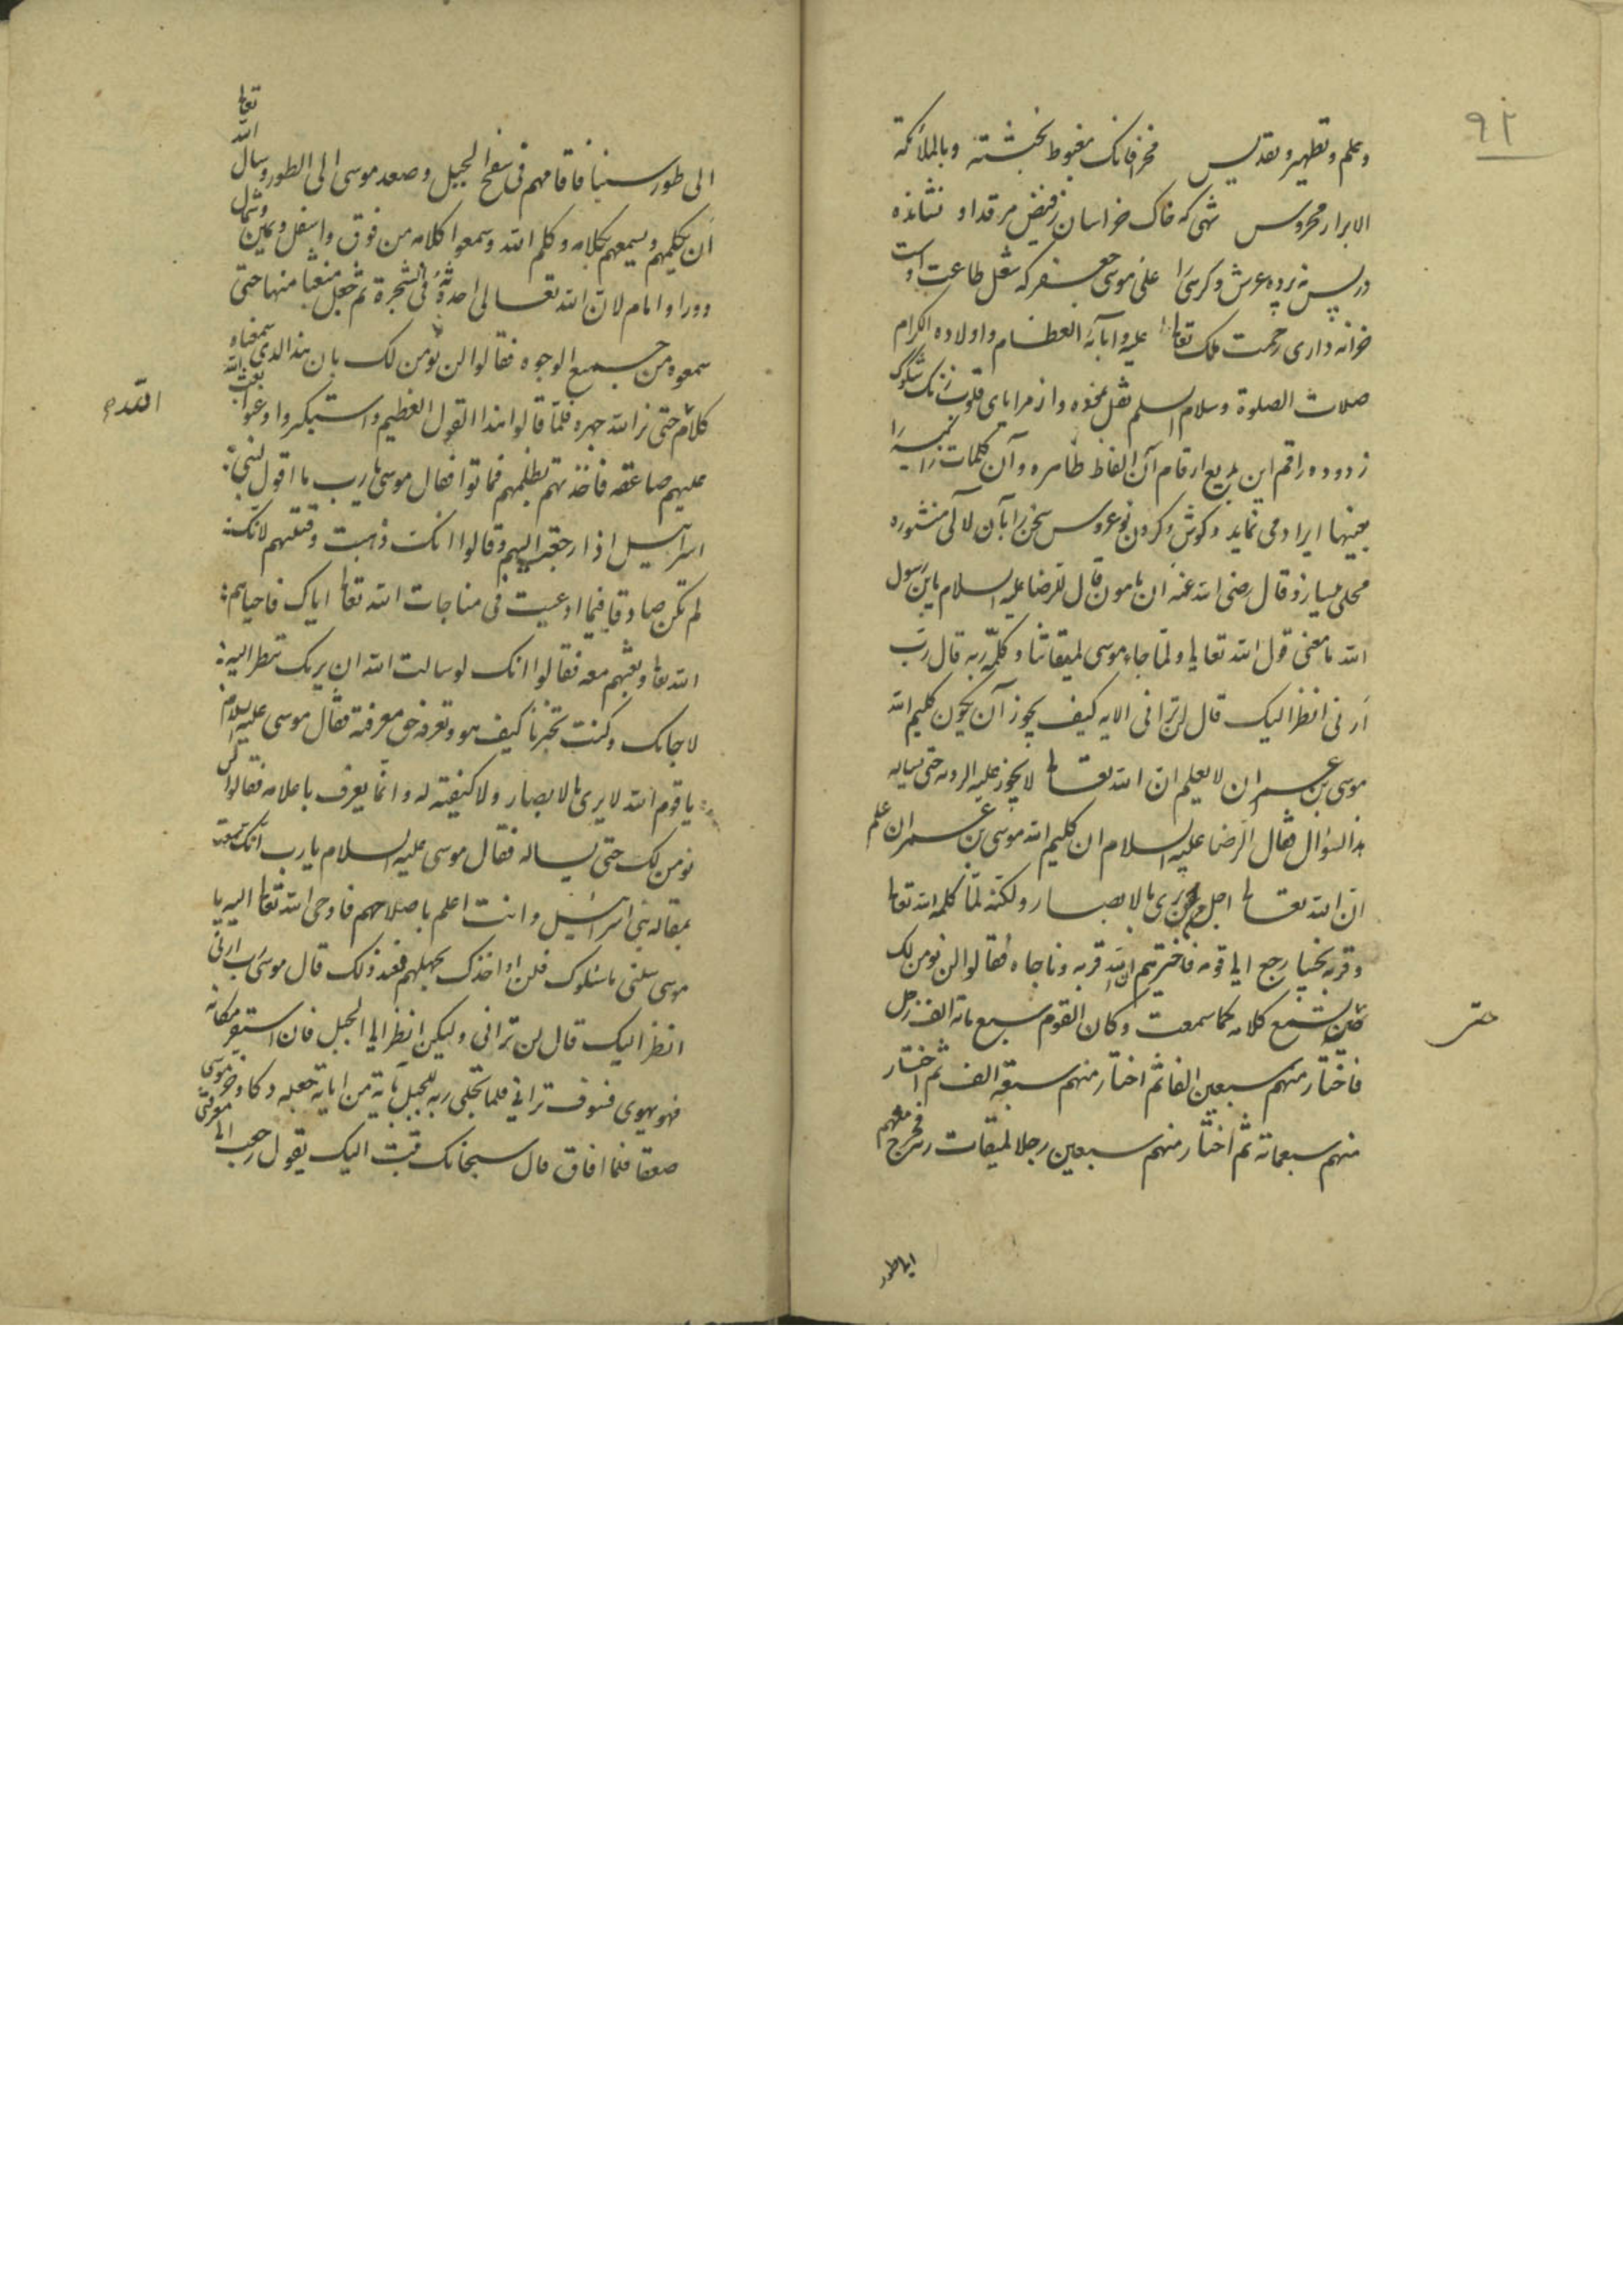 ۹۲
وعلم وتطهیر وتقدیس فخزفانک مغبوط بخشته وبالملائکة
الابرار محروس شهی که خاک خراسان ز فیض مرقد او نشانده
در پس نه پرده عرش و کرسی را علی موسی جعفر که شغل طاعت اوست
خزانه داری رحمت ملک تعالی را علیه وابآئه العظام واولاده الکرام
صلات الصلوة وسلام السلم نقل نموده و از مرایای قلوب زنگ شکوک
زدوده راقم این بدیع ارقام آن الفاظ طاهره و آن کلمات زاهره را
بعینها ایراد می نماید و گوش و گردن نوعروس سخن را بآن لآلی منثوره
محلی میسازد و قال رضی الله عنه ان مامون قال للرضا علیه السلام یا بن رسول
الله ما معنی قول الله تعالی ولما جاء موسی لمیقاتنا وکلمه ربه قال رب
ارنی انظر الیک قال لن ترانی الایه کیف یجوز آن یکون کلیم الله
موسی بن عمران لا یعلم ان الله تعالی لا یجوز علیه الرویه حتی یساله
هذا السؤال فقال الرضا علیه السلام ان کلیم الله موسی بن عمران علم
ان الله تعالی اجل من ان یری بالابصار ولکنه لما کلمه الله تعالی
وقربه نجیا رجع الی قومه فاخبرهم ان الله قربه وناجاه فقالوا لن نومن لک
حتی نسمع کلامه کما سمعت وکان القوم سبع مائه الف رجل
حتی
فاختار منهم سبعین الفا ثم اختار منهم سبعة الف ثم اختار
منهم سبعمائة ثم اختار منهم سبعین رجلا لمیقات ربه فخرج معهم
الی طور
الی طور سینا فاقامهم فی سفح الجبل وصعد موسی الی الطور وسال الله تعالی
ان یکلمهم ویسمعهم کلامه وکلم الله وسمعوا کلامه من فوق واسفل ویمین وشمال
وورا وامام لان الله تعالی احدثه فی الشجرة ثم جعل منبعثا منها حتی
سمعوه من جمیع الوجوه فقالوا لن نومن لک بان هذا الذی سمعناه
کلام حتی نرا الله جهره فلما قالوا هذا القول العظیم واستکبروا وعتوا بعث الله
الله
علیهم صاعقه فاخذتهم بظلمهم فماتوا فقال موسی یا رب ما اقول لبنی
اسرائیل اذا رجعت الیهم وقالوا انک ذهبت وقتلتهم لانک
لم تکن صادقا فیما ادعیت فی مناجات الله تعالی ایاک فاحیاهم
الله تعالی وبعثهم معه فقالوا انک لو سالت الله ان یریک تنظر الیه
لاجابک وکنت تخبرنا کیف هو وتعرفه حق معرفته فقال موسی علیه السلام
یا قوم الله لا یری بالابصار ولا کیفیته له وانما یعرف باعلامه فقالوا لن
نومن لک حتی یساله فقال موسی علیه السلام یا رب انک سمعت
بمقاله بنی اسرائیل وانت اعلم باصلاحهم فاوحی الله تعالی الیه یا
موسی سلنی ما سئلوک فلن اواخذک بجهلهم فعند ذلک قال موسی رب ارنی
انظر الیک قال لن ترانی ولیکن انظر الی الجبل فان استقر مکانه
فهو یهوی فسوف ترانی فلما تجلی ربه للجبل بایة من ایاته جعله دکا وخر موسی
صعقا فلما افاق قال سبحانک تبت الیک یقول رجعت الی معرفتی